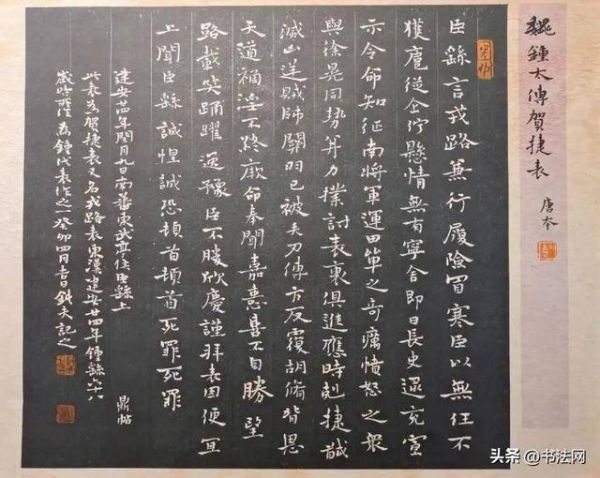 魏鍾太傅賀捷表 唐本
臣繇言戎路兼行履險冒寒臣以無任不
獲扈從企佇懸情無有寧舍即日長史逯充宣
示令命知征南將軍運田單之奇厲憤怒之衆
與徐晃同勢并力撲討表裏俱進應時剋捷馘
滅凶逆賊帥關羽已被矢刃傅方反覆胡脩背恩
天道禍淫不終厥命奉聞嘉憙喜不自勝望
路載笑踊躍逸豫臣不勝欣慶謹拜表因便宜
上聞臣繇誠惶誠恐頓首頓首死罪死罪
建安廿四年閏月九日南蕃東武亭侯臣繇上 鼎帖
此表為賀捷表又名戎路表東漢建安廿四年鍾繇六八
歲時所作為鍾代表作之一癸卯四月吉日夫記之
头条 @书法网